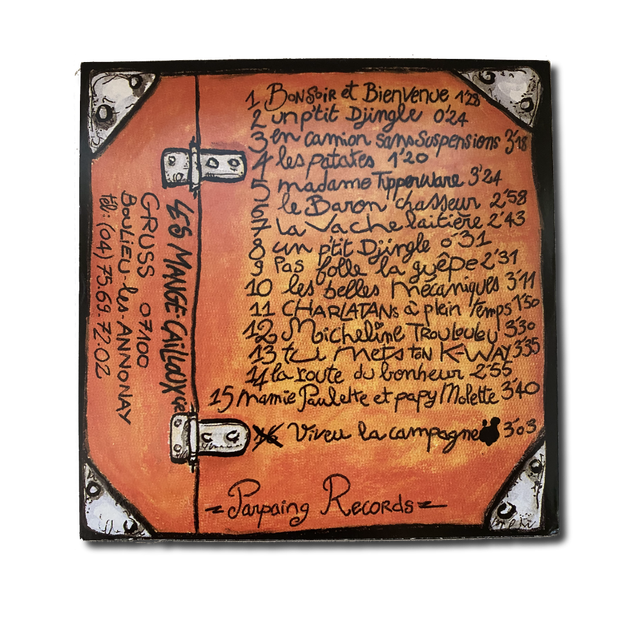 1 Bonsoir et Bienvenue 1'28
2 un p'tit Djingle 0'24
3 en camion sans suspensions 3'18
4 les patates 1'20
5 madame Tipperware 3'24
6 le Baron chasseur 2'58
7 La Vache laitière 2'43
8 un p'tit Djingle 0'31
9 Pas folle la guêpe 2'31
10 les belles mécaniques 3'11
11 CHARLATANs à plein temps 1'50
12 Micheline Troulouley 3'30
13 tu mets ton K-WAY 3'35
14 la route du bonheur 2'55
15 mamie Paulette et papy Molette 3'40
Viveu la campagne 3'03
Parpaing Records
LES MANGE CAILLOUX
GRUSS 07100
BOULIEU-les-ANNONAY
tél: (04) 75.69.72.02